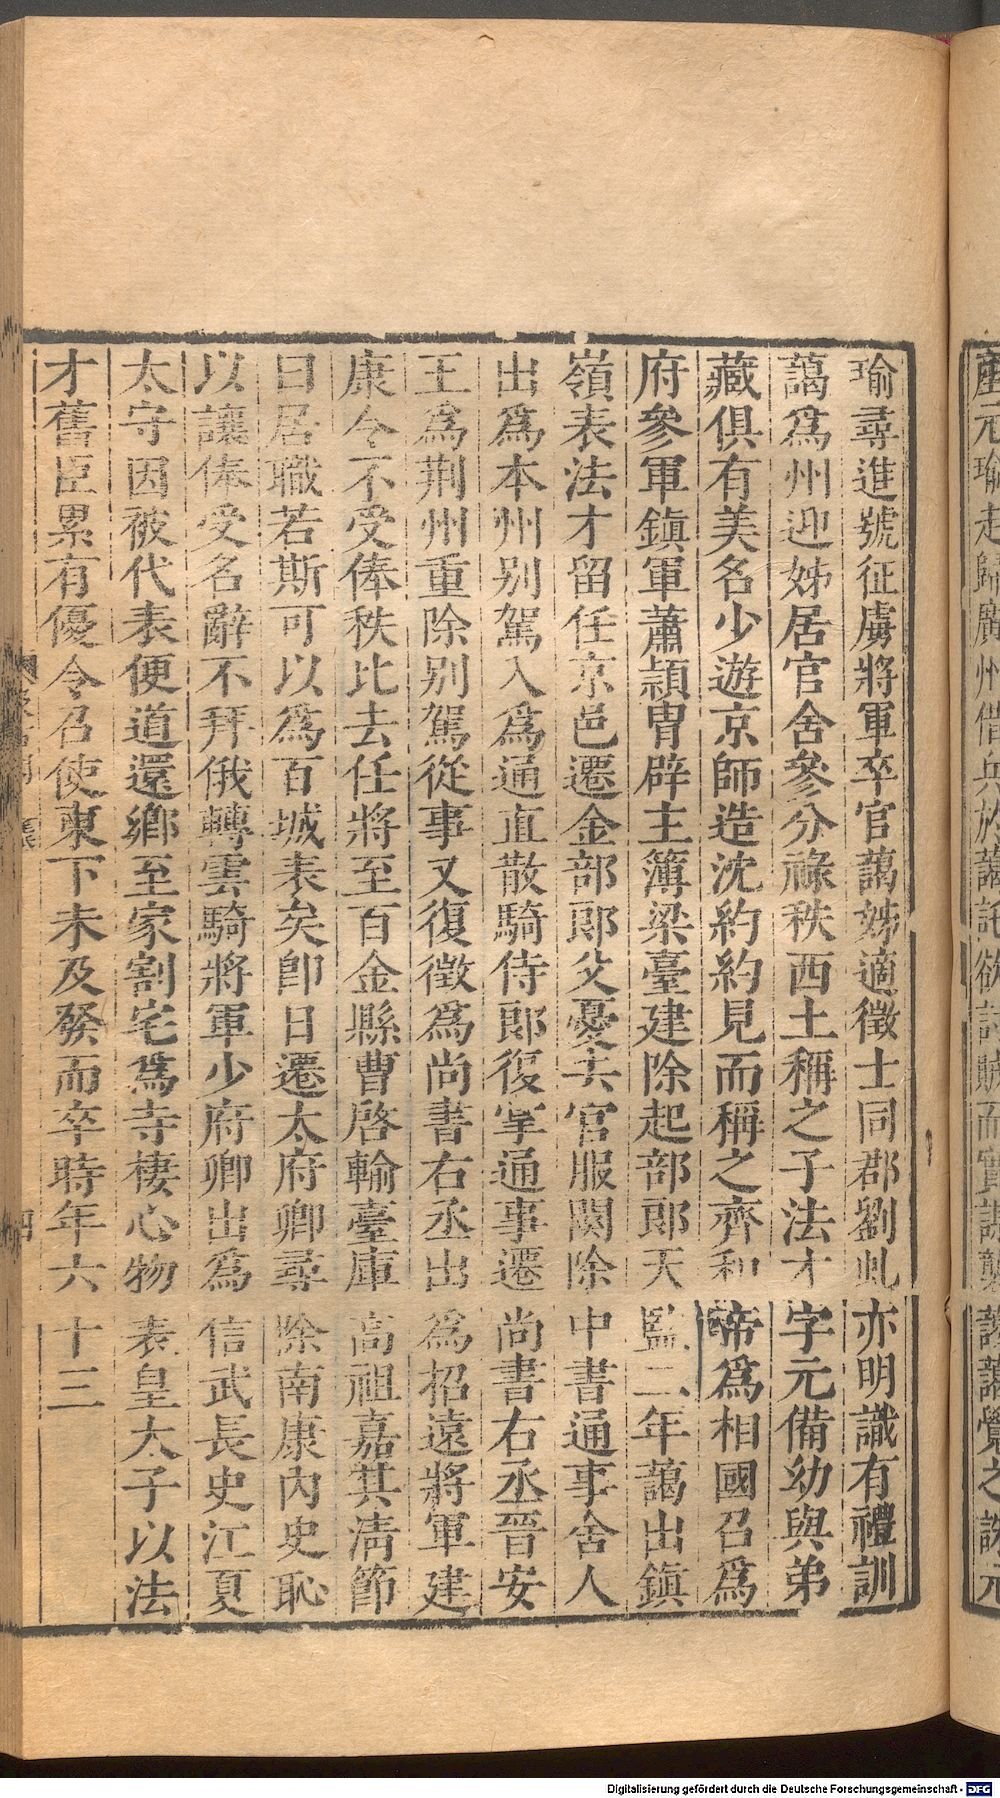 産元瑜走歸廣州借兵於藹託欲討賊而實謀襲藹藹覺之誅元
瑜尋進號征虜將軍卒官藹姊適徵士同郡劉虬亦明識有禮訓
藹爲州迎姊居官舍參分祿秩西土稱之子法才字元備幼與弟
藏俱有美名少遊京師造沈約約見而稱之齊和帝爲相國召爲
府參軍鎮軍蕭頴胄辟主簿梁臺建除起部郎天監二年藹出鎮
嶺表法才留任京邑遷金部郎父憂去官服闋除中書通事舍人
出爲本州别駕入爲通直散騎侍郎復掌通事遷尚書右丞晉安
王爲荆州重除别駕從事又復徵爲尚書右丞出爲招遠將軍建
康令不受俸秩比去任將至百金縣曹啓輸臺庫高祖嘉其淸節
曰居職若斯可以爲百城表矣卽日遷太府卿尋除南康內史恥
以讓俸受名辭不拜俄轉雲騎將軍少府卿出爲信武長史江夏
太守因被代表便道還鄉至家割宅爲寺棲心物表皇太子以法
才舊臣累有優令召使東下未及發而卒時年六十三
四
Digitalisierung gefördert durch die Deutsche Forschungsgemeinschaft - DFG